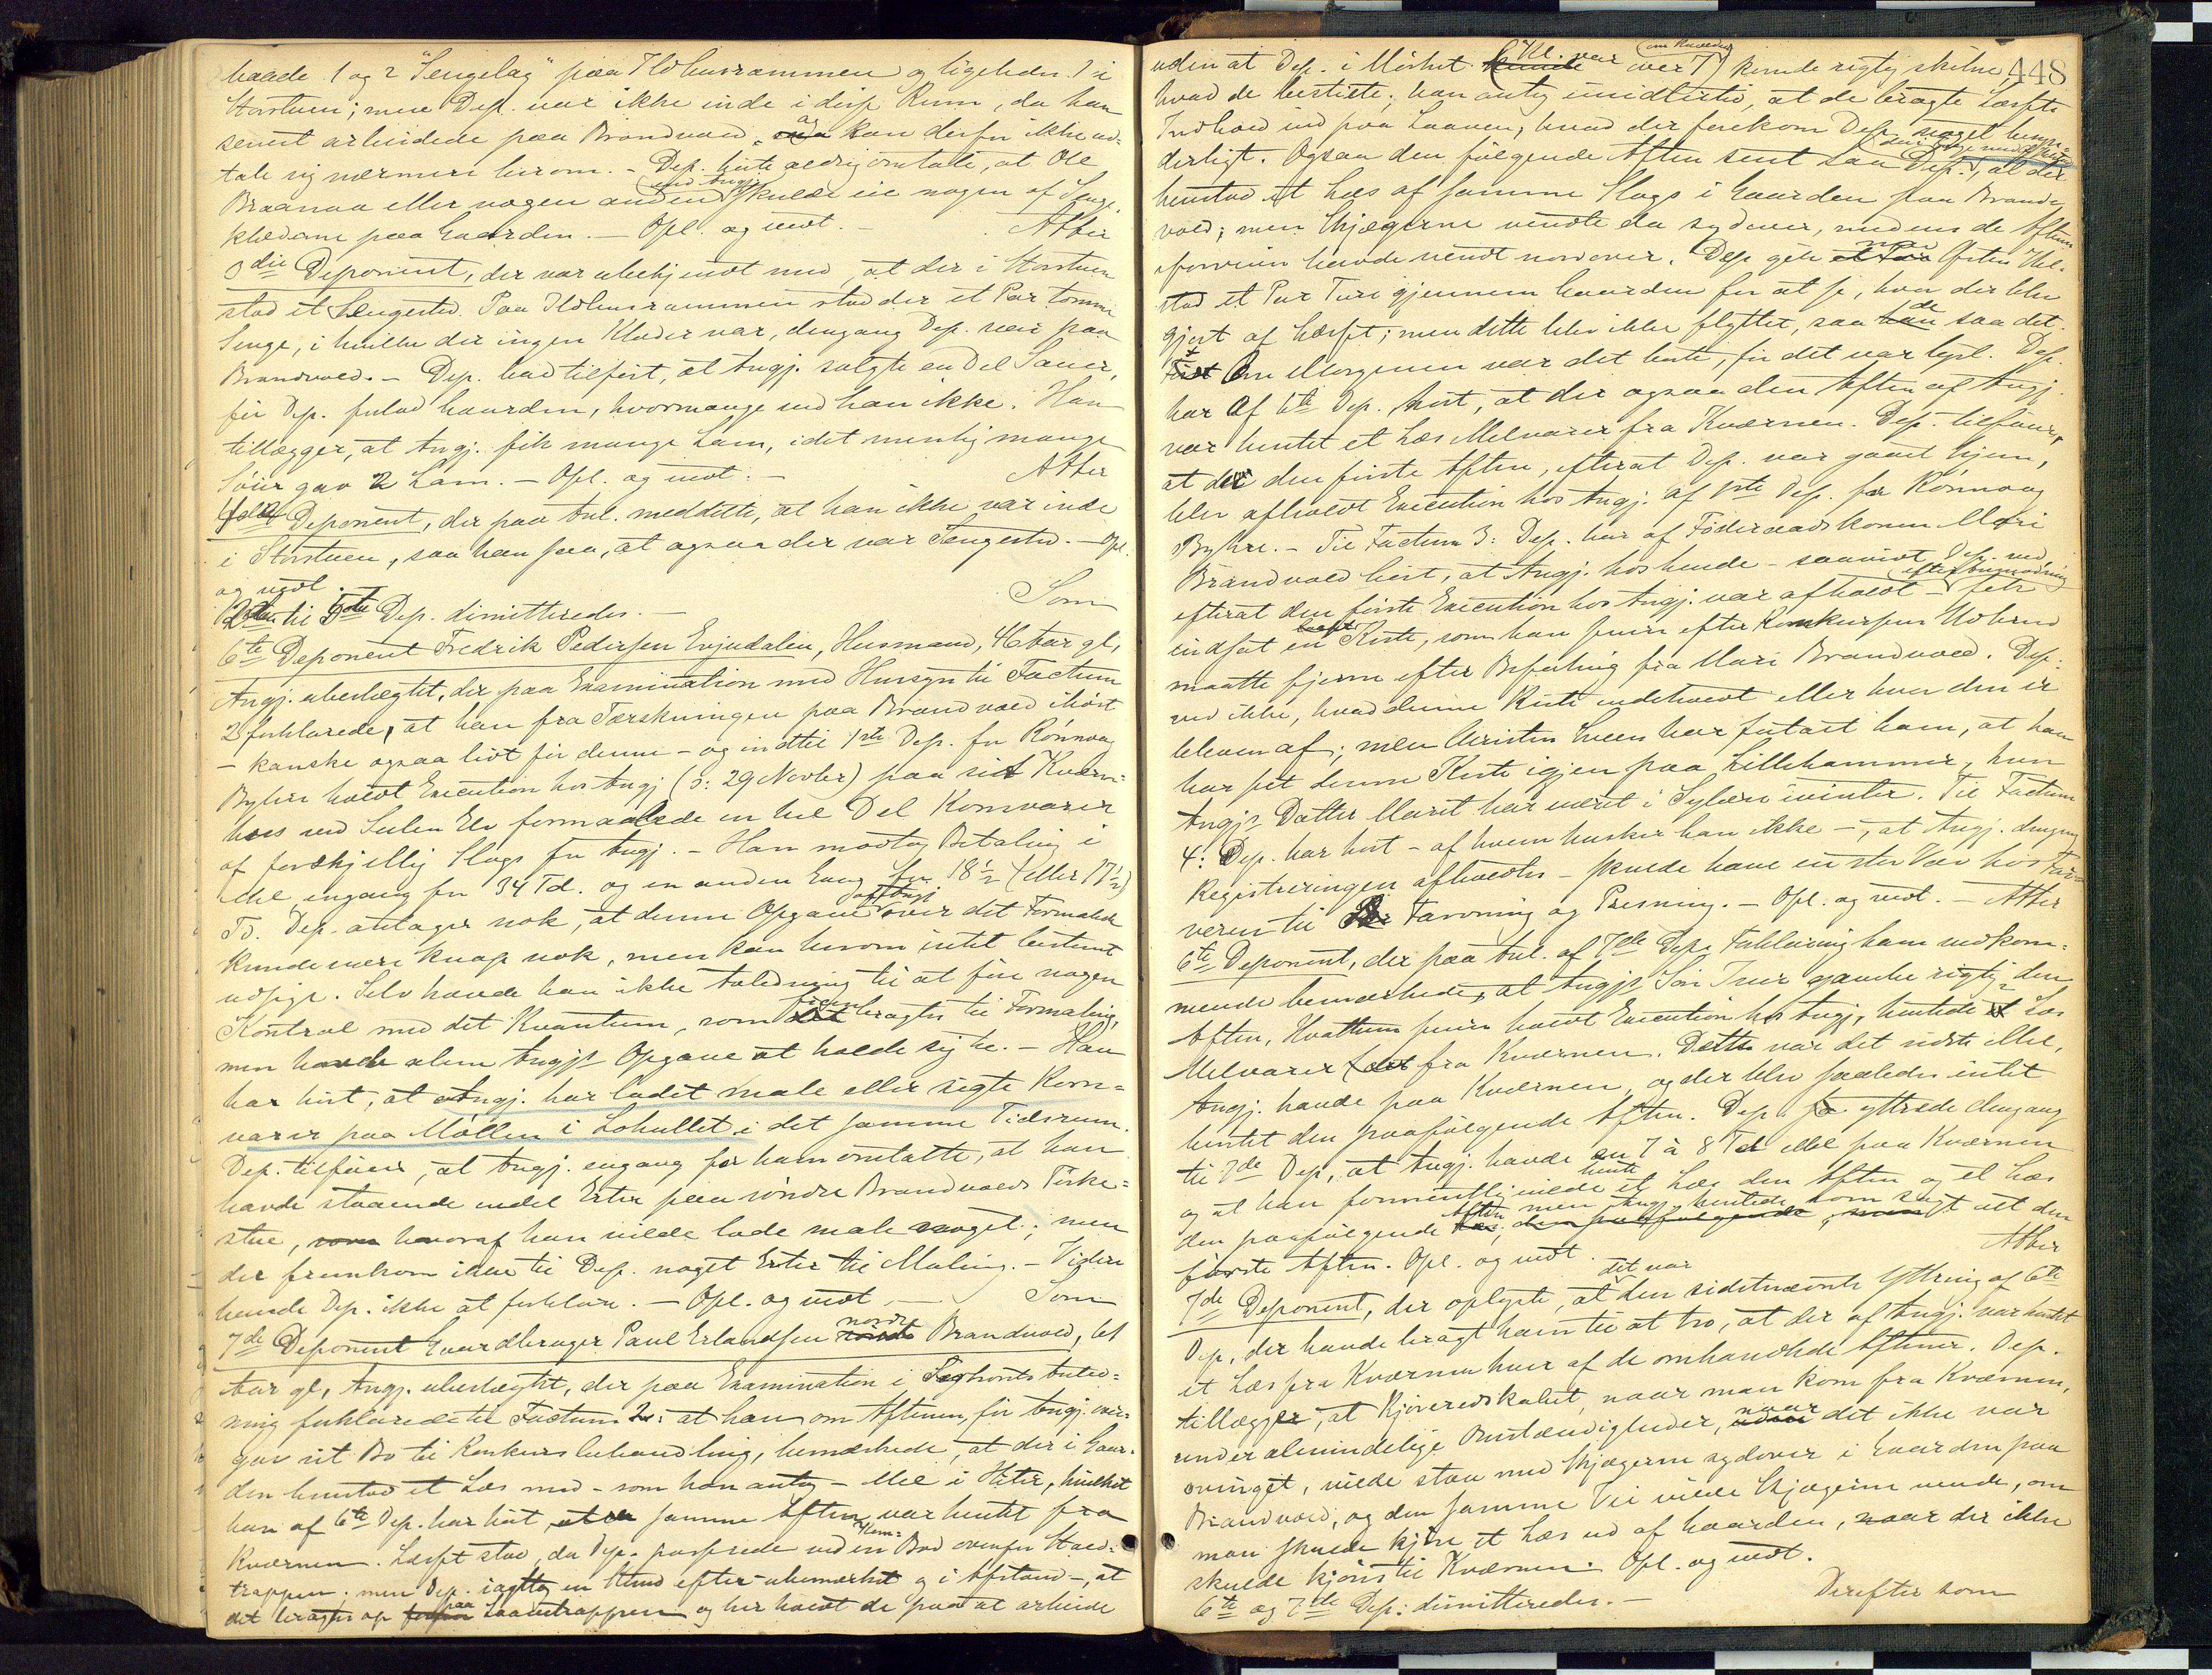 baade 1 og 2 "Sengelag" paa Ildhusrammen og ligeledes 1 i
Storstuen; men Dep. var ikke inde i disse Rum, da han
senest arbeidede paa Brandvold, og kan derfor ikke ud-
tale sig nærmere herom. - Dep. hørte aldrig omtale, at Ole
Braanaa eller nogen anden end Angj. skulde eie nogen af Senge-
klæderne paa Gaarden. - Opl. og vedt. - Atter
3die Deponent, der var ubekjendt med, at der i Storstuen
stod et Sengested. Paa Ildhusrammen stod der et Par tomme
Senge, i hvilke der ingen Klæder var, dengang Dep. var paa
Brandvold. - Dep. har tilført, at Angj. solgte en Del Sauer,
før Dep. forlod Gaarden, hvormange ved han ikke. Han
tillægger, at Angj. fik mange Lam, idet nemlig mange
Søier gav 2 Lam. - Opl. og vedt. - Atter
Deponent, der paa Anl. meddelte, at han ikke var inde
i Storstuen, saa han saa, at ogsaa der var Sengested. - Opl.
og vedt.
2den til 5te Dep. dimitteredes. - Som
6te Deponent Fredrik Pedersen Evjudalen, Husmand, 46 Aar gl,
Angj. ubeslægtet, der paa Examination med Hensyn til Factum
2 forklarede, at han fra Tærskningen paa Brandvold ihøst
- kanske ogsaa lidt før denne - og indtil 1ste Dep. for Rønnaug
Bykre holdt Execution hos Angj (ɔ: 29 Novbr) paa sit Kværn-
hus ved Selen Elv formalede en hel Del Kornvarer
af forskjellig Slags for Angj. - Han modtog Betaling i
Mel engang for 34 Td. og en anden Gang for 18½ (eller 17½)
Td. Dep. antager nok, at denne Opgave af Angj over det Formalede
kunde være knap nok, men kan herom intet bestemt
udsige. Selv havde han ikke Anledning til at føre nogen
Kontrol med det Kvantum, som bragtes til Formaling,
men havde alene Angjs Opgave at holde sig til. - Han
har hørt, at Angj. har ladet male eller sigte Korn-
varer paa Møllen i Lohullet i det samme Tidsrum.
Dep. tilføier, at Angj. engang for ham omtalte, at han
havde staaende endel Erter paa søndre Brandvolds Tørke-
stue, hvoraf han vilde lade male noget; men
der fremkom ikke til Dep. noget Erter til Maling. - Videre
havde Dep. ikke at forklare. - Opl. og vedt. - Som
7de Deponent Gaardbruger Paul Erlandsen nordre Brandvold, 61
Aar gl, Angj. ubeslægtet, der paa Examination i Anled-
ning forklarede til Factum 2: at han om Aftenen, før Angj. over-
gav sit Bo til Konkursbehandling, bemærkede, at der i Gaar-
den henstod et Læs med - som han antog - Mel i Hiter, hvilket
han af 6te Dep. har hørt, samme Aften var hentet fra
Kværnen. Læsset stod, da Dep. passerede ved en Bod ovenfor Stald-
trappen; men Dep. iagttog en Stund efter - ubemærket og i Afstand -, at
det bragtes op paa Laavetrappen og her holdt de paa at arbeide
448
uden at Dep. i Mørket (Kl. var over 7 om Kvelden) kunde rigtig skilne,
hvad de bestilte; han antog imidlertid, at de bragte Læssets
Indhold ind paa Laaven, hvad der forekom Dep. noget besyn-
derligt. Ogsaa den følgende Aften sent saa Dep., at der
henstod et Læs af samme Slags i Gaarden paa Brand-
vold; men Skjægerne vendte da sydover, medens de Aftenen
forveien havde vendt nordover. Dep. gik
stod et Par Ture gjennem Gaarden for at se, hvor der blev
gjort af Læsset; men dette blev ikke flyttet, saa de saa det.
Om Morgenen var det borte, før det var lyst. Dep.
har af 6te Dep. hørt, at der ogsaa den Aften af Angj.
var hentet et Læs Melvarer fra Kværnen. Dep. tilføier,
at der den første Aften, efterat Dep. var gaaet hjem,
blev afholdt Execution hos Angj. af 1ste Dep. for Rønnaug
Bykre. - Til Factum 3: Dep. har af Føderaadskonen Mari
Brandvold hørt, at Angj. hos hende - saavidt Dep. ved,
efterat den første Execution hos Angj. var afholdt - fik
indsat en Kiste, som han senere efter Konkursens Udbrud
maatte fjerne efter Befaling fra Mari Brandvold. Dep.
ved ikke, hvad denne Kiste indeholdt eller hvor den er
bleven af; men Kristen Sveen har fortalt ham, at han
har set denne Kiste igjen paa Lillehammer, hvor
Angjs Datter Marit har været i Sylære ivinter. Til Factum
4: Dep. har hørt - af hvem husker han ikke -, at Angj. dengang
Registreringen afholdtes - skulde have en stor Væv hos Far-
veren til Farvning og Presning. - Opl. og vedt. - Atter
6te Deponent, der paa Anl. af 7de Deps Forklaring ham vedkom-
mende bemærkede, at Angjs Søn Iver ganske rigtig den
Aften, Kvathum senere holdt Execution hos Angj, hentede et Læs
Melvarer fra Kværnen. Dette var det sidste Mel,
Angj. havde paa Kværnen, og der blev saaledes intet
hentet den paafølgende Aften. Dep. yttrede dengang
til 7de Dep, at Angj. havde en 7 à 8 Td Mel paa Kværnen
og at han formentlig vilde hente et Læs den Aften og et Læs
den paafølgende Aften, men Angj. hentede som sagt alt den
første Aften. Opl. og vedt. Atter
7de Deponent, der oplyste, at det var den sidstnævnte Yttring af 6te
Dep, der havde bragt ham til at tro, at der af Angj. var hentet
et Læs fra Kværnen hver af de omhandlede Aftener. Dep.
tillægger, at Kjøreredskabet, naar man kom fra Kværnen,
under almindelige Omstændigheder, naar det ikke var
svinget, vilde staa med Skjægerne sydover i Gaarden paa
Brandvold, og den samme Vei vilde Skjægerne vende, om
man skulde kjøre et Læs ud af Gaarden, naar der ikke
skulde kjøres til Kværnen. Opl. og vedt.
6te og 7de Dep. dimitteredes. - Derefter som